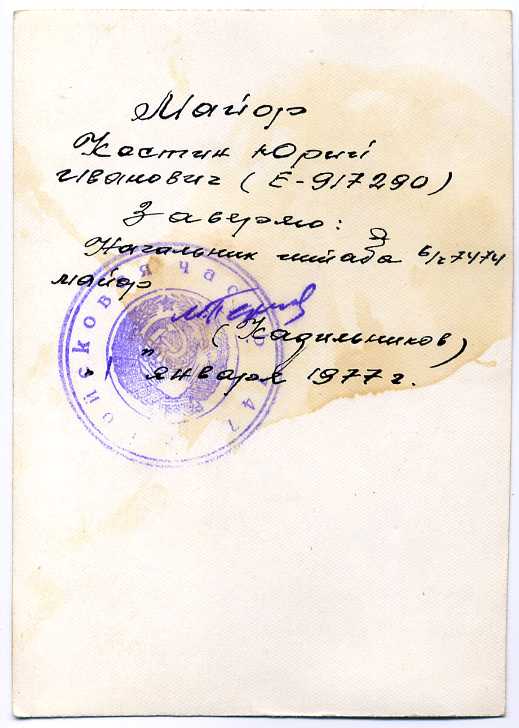 Майор
Костин Юрий
Иванович (Е-917290)
Заверяю:
Начальник штаба в/ч 7474
майор
(Кадильников)
" января 1977 г.
войсковая часть